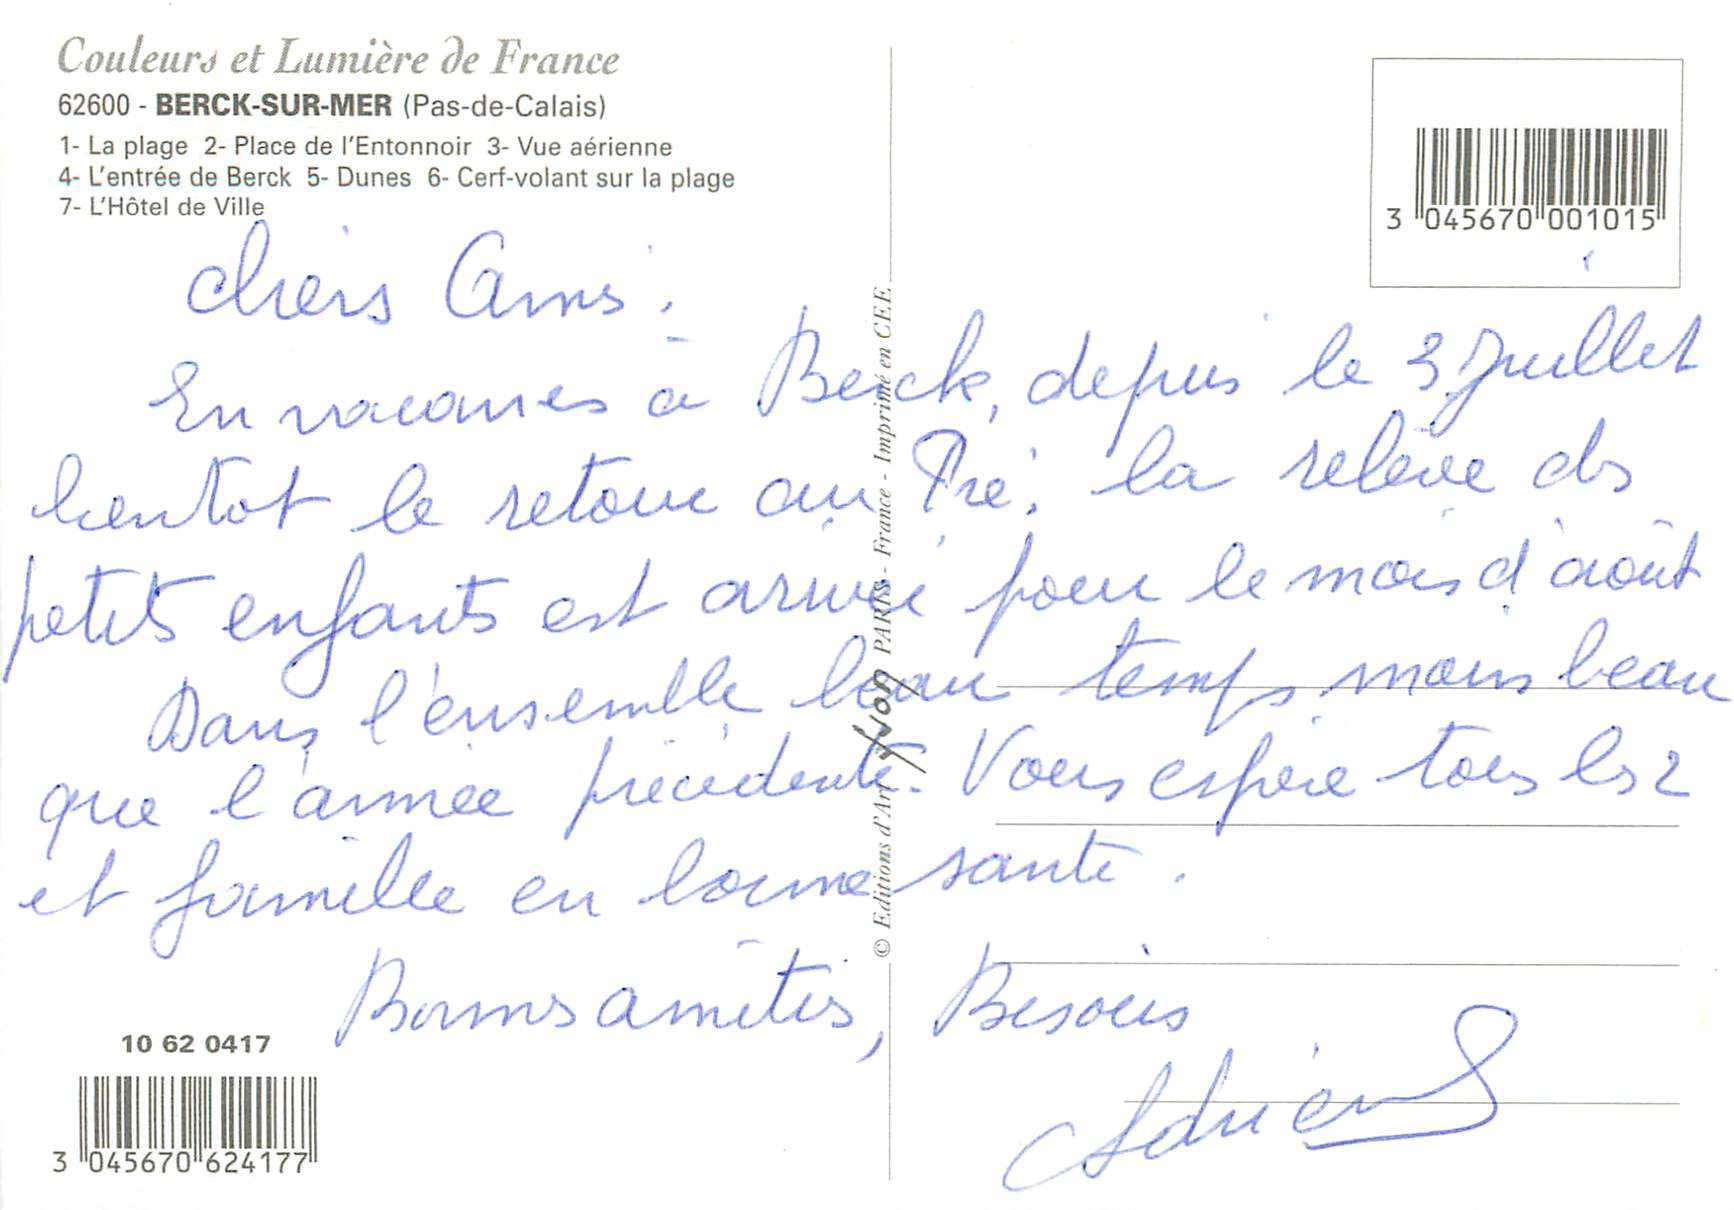 Couleurs et Lumière de France
62600 - BERCK-SUR-MER (Pas-de-Calais)
1- La plage 2- Place de l'Entonnoir 3- Vue aérienne
4- L'entrée de Berck 5- Dunes 6- Cerf-volant sur la plage
7- L'Hôtel de Ville
3 045670 001015
chers Amis.
En vacances à Berck, depuis le 3 Juillet
bientot le retour au Pré. la relève des
petits enfants est arrivée pour le mois d'août
Dans l'ensemble beau temps moins beau
que l'année précédente. Vous espère tous les 2
et famille en bonne santé.
Bonnes amitiés, Bisous
10 62 0417
3 045670 624177
© Editions d'Art YVON PARIS - France - Imprimé en CEE